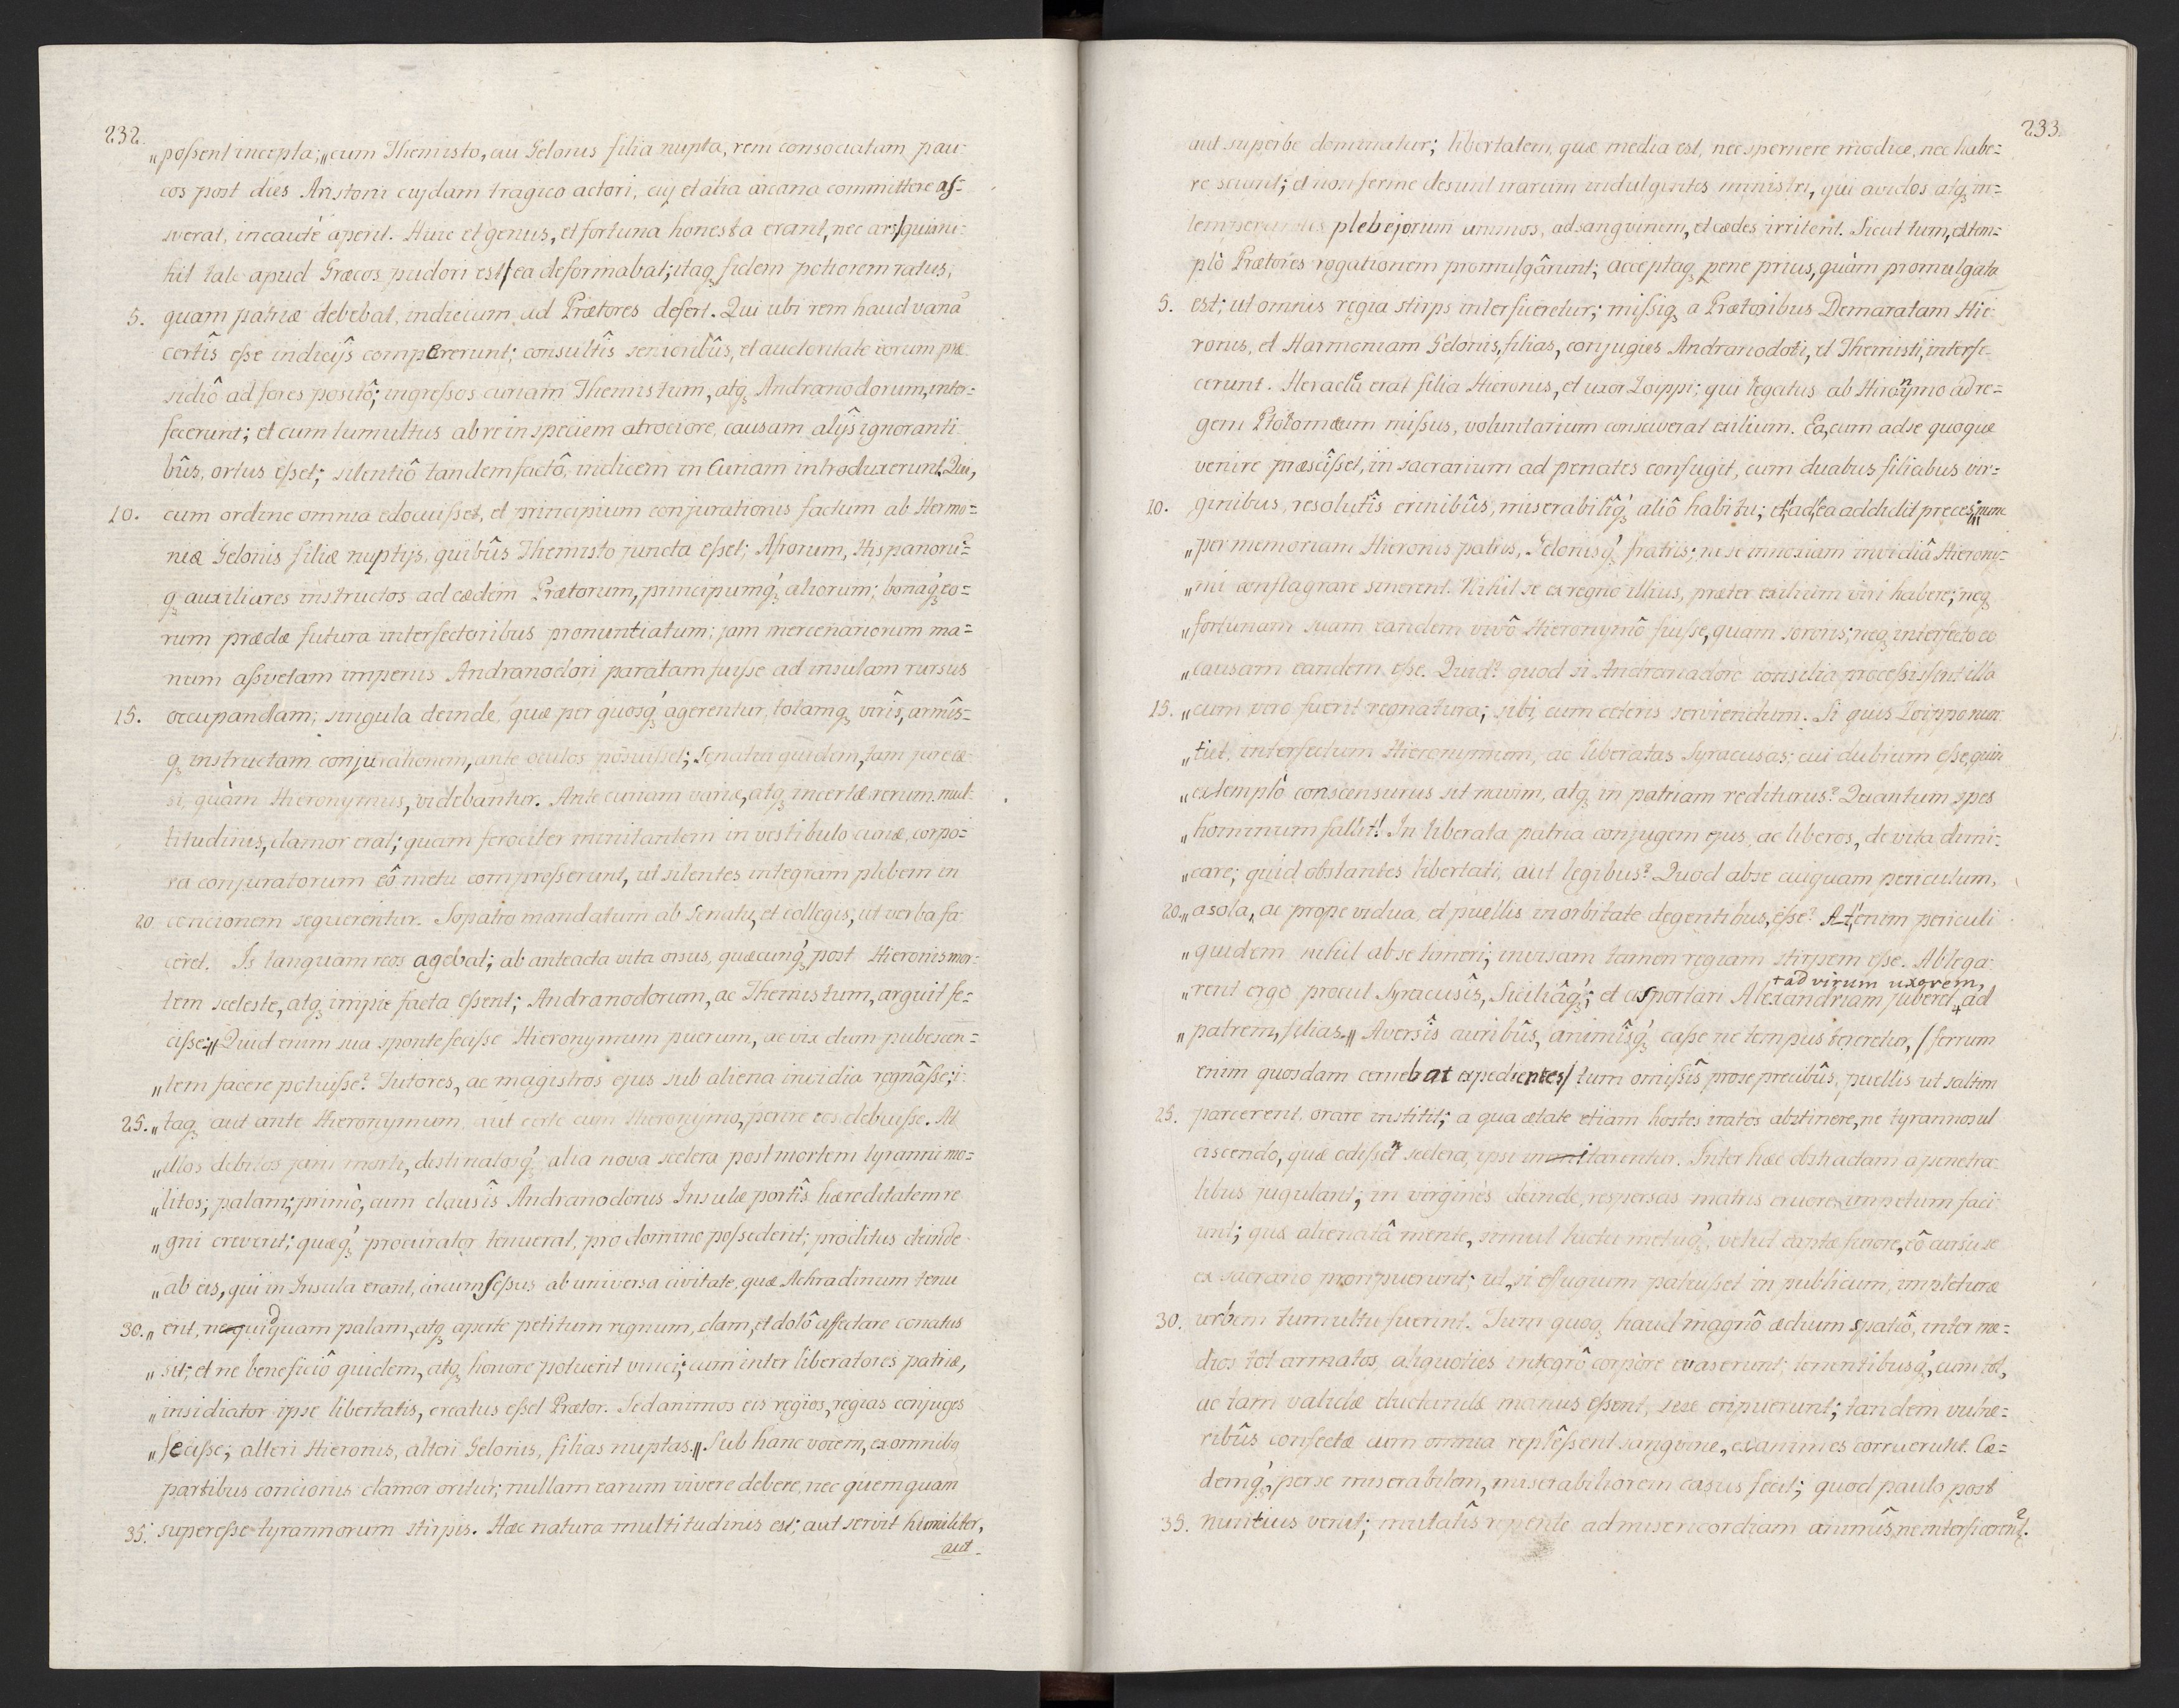 232.
„possent incepta;„ cum Themisto, cui Gelonis filia nupta, rem consociatam pau-
cos post dies Aristoni cujdam tragico actori, cuj et alia arcana committere as-
sverat, incautè aperit. Huic et genus, et fortuna honesta erant, nec ars/ quia ni-
hil tale apud Græcos pudori est/ ea deformabat; itaq fidem potiorem ratus,
5. quam patriæ debebat, indicium ad Prætores defert. Qui ubi rem haud vanā
certîs esse indicijs compererunt; consultîs senioribûs, et auctoritate eorum præ-
sidiô ad fores positô; ingressos curiam Themistum, atq Andranodorum, inter-
fecerunt; et cum tumultus ab re in speciem atrociore, causam alijs ignoranti-
bûs, ortus esset; silentiô tandem factô, indicem in Curiam introduxerunt. Qui,
10. cum ordine omnia edocuisset, et principium conjurationis factum ab Harmo-
niæ Gelonis filiæ nuptijs, quibûs Themisto juncta esset; Afrorum, Hispanorū-
q auxiliares instructos ad cædem Prætorum, principumq́ aliorum; bonaq́ eo-
rum prædæ futura interfectoribus pronuntiatum; jam mercenariorum ma-
num assvetam imperiis Andranodori paratam fuisse ad insulam rursus
15. occupandam; singula deinde, quæ per quosq́ agerentur, totamq viris, armîs-
q instructam conjurationem, ante oculos posuisset; Senatui quidem, tam jure cæ-
si, quàm Hieronymus, videbantur. Ante curiam variæ, atq incertæ rerum mul-
titudinis, clamor erat; quam ferociter minitantem in vestibulo curiæ, corpo-
ra conjuratorum eô metu compresserunt, ut silentes integram plebem in
20 concionem sequerentur. Sopatro mandatum ab Senatu, et collegis, ut verba fa-
ceret. Is tanquam reos agebat; ab anteacta vita orsus, quæcunq́ post Hieronis mor-
tem sceleste, atq impie facta essent; Andranodorum, ac Themistum, arguit fe-
cisse:„ Quid enim sua sponte fecisse Hieronymum puerum, ac vix dum pubescen-
„tem facere potuisse? Tutores, ac magistros ejus sub aliena invidia regnâsse; i-
25. „taq aut ante Hieronymum, aut certe cum Hieronymo, perire eos debuisse. At
„illos debitos jam morti, destinatosq́ alia nova scelera post mortem tyranni mo-
„litos; palam; primò, cum clausîs Andranodorus Insulæ portîs hæreditatem re-
„gni creverit; quæq́ procurator tenuerat, pro domino possederit; proditus deinde
„ab eis, qui in Insula erant, circumsessus ab universa civitate, quæ Achradinam tenu-
30. „erit, nequidquam palam, atq aperte petitum regnum, clam, et dolô affectare conatus
„sit; et ne beneficiô quidem, atq honore potuerit vinci; cum inter liberatores patriæ,
„insidiator ipse libertatis, creatus esset Prætor. Sed animos eis regios, regias conjuges
„fecisse; alteri Hieronis, alteri Gelonis, filias nuptas.„ Sub hanc vocem, ex omnibq
partibus concionis clamor oritur; nullam earum vivere debere, nec quemquam
35. superesse tyrannorum stirpis. Hæc natura multitudinis est; aut servit humiliter,
aut
233.
aut superbe dominatur; libertatem, quæ media est, nec spernere modice, nec habe-
re sciunt; et non ferme desunt irarum indulgentes ministri, qui avidos atq in-
temperantes plebejorum animos, ad sangvinem, et cædes irritent. Sicut tum, extem-
plò Prætores rogationem promulgârunt; acceptaq pene prius, quàm promulgata
5. est; ut omnis regia stirps interficeretur; missiq a Prætoribus Demaratam Hie-
ronis, et Harmoniam Gelonis, filias, conjuges Andranodoti, et Themisti, interfe-
cerunt. Heraclæ erat filia Hieronis, et uxor Zoippi; qui legatus ab Hironymo ad re-
gem Ptolomæum missus, voluntarium consciverat exilium. Ea, cum ad se quoque
venire præscîsset, in sacrarium ad penates confugit, cum duabus filiabus vir-
10. ginibus, resolutîs crinibûs, miserabiliq́ aliô habitu; et ad ea addidit preces„ nunc
„per memoriam Hieronis patris, Gelonisq́ fratris; ne se innoxiam invidiâ Hierony-
„mi conflagrare sinerent. Nihil se ex regno illius, præter exilium viri habere; neq
„fortunam suam eandem vivô Hieronymô fuisse, quam sororis; neq interfecto eo
„causam eandem esse. Quid? quod si Andranadoro consilia processissent illa
15. „cum viro fuerit regnatura; sibi cum ceteris serviendum. Si quis Zoippo nun-
„tiet, interfectum Hieronymum, ac liberatas Syracusas; cui dubium esse, quin
„extemplò conscensurus sit navim, atq in patriam rediturus? Quantum spes
„hominum falli! In liberata patria conjugem ejus, ac liberos, de vita dimi-
„care; quid obstantes libertati, aut legibus? Quod ab se cuiquam periculum,
20. „a sola, ac prope vidua, et puellis in orbitate degentibus, esse? At enim periculi
„quidem nihil ab se timeri; invisam tamen regiam stirpem esse. Ablega-
+ ad virum uxorem,
„rent ergo procul Syracusîs, Siciliâq́; et asportari Alexandriam juberet + ad
„patrem, filias.„ Aversîs auribûs, animîsq́ casse ne tempus tereretur, / ferrum
enim quosdam cernebat expedientes/ tum omissîs pro se precibûs, puellis ut saltem
25. parcerent, orare institit; a qua ætate etiam hostes iratos abstinere, ne tyrannos ul-
ciscendo, quæ odissent scelera, ipsi imitarentur. Inter hæc abstractam a penetra-
libus jugulant; in virgines deinde, respersas matris cruore impetum faci-
unt; quæ alienatâ mente, simul luctu metuq́, velut captæ furore, eô cursu se
ex sacrario proripuerunt; ut, si effugium patuisset in publicum, impleturæ
30. urbem tumultu fuerint. Tum quoq haud magnô ædium spatiô, inter me-
dios tot armatos, aliquoties integrô corpore evaserunt; tenentibusq́, cum tot,
ac tam validæ eluctandæ manus essent, sese eripuerunt; tandem vulne-
ribûs confectæ cum omnia replêssent sangvine, exanimes corruerunt. Cæ-
demq́, per se miserabilem, miserabiliorem casus fecit; quod paulo post
35. nuntius venit; mutatîs repente ad misericordiam animîs ne interficerent2.